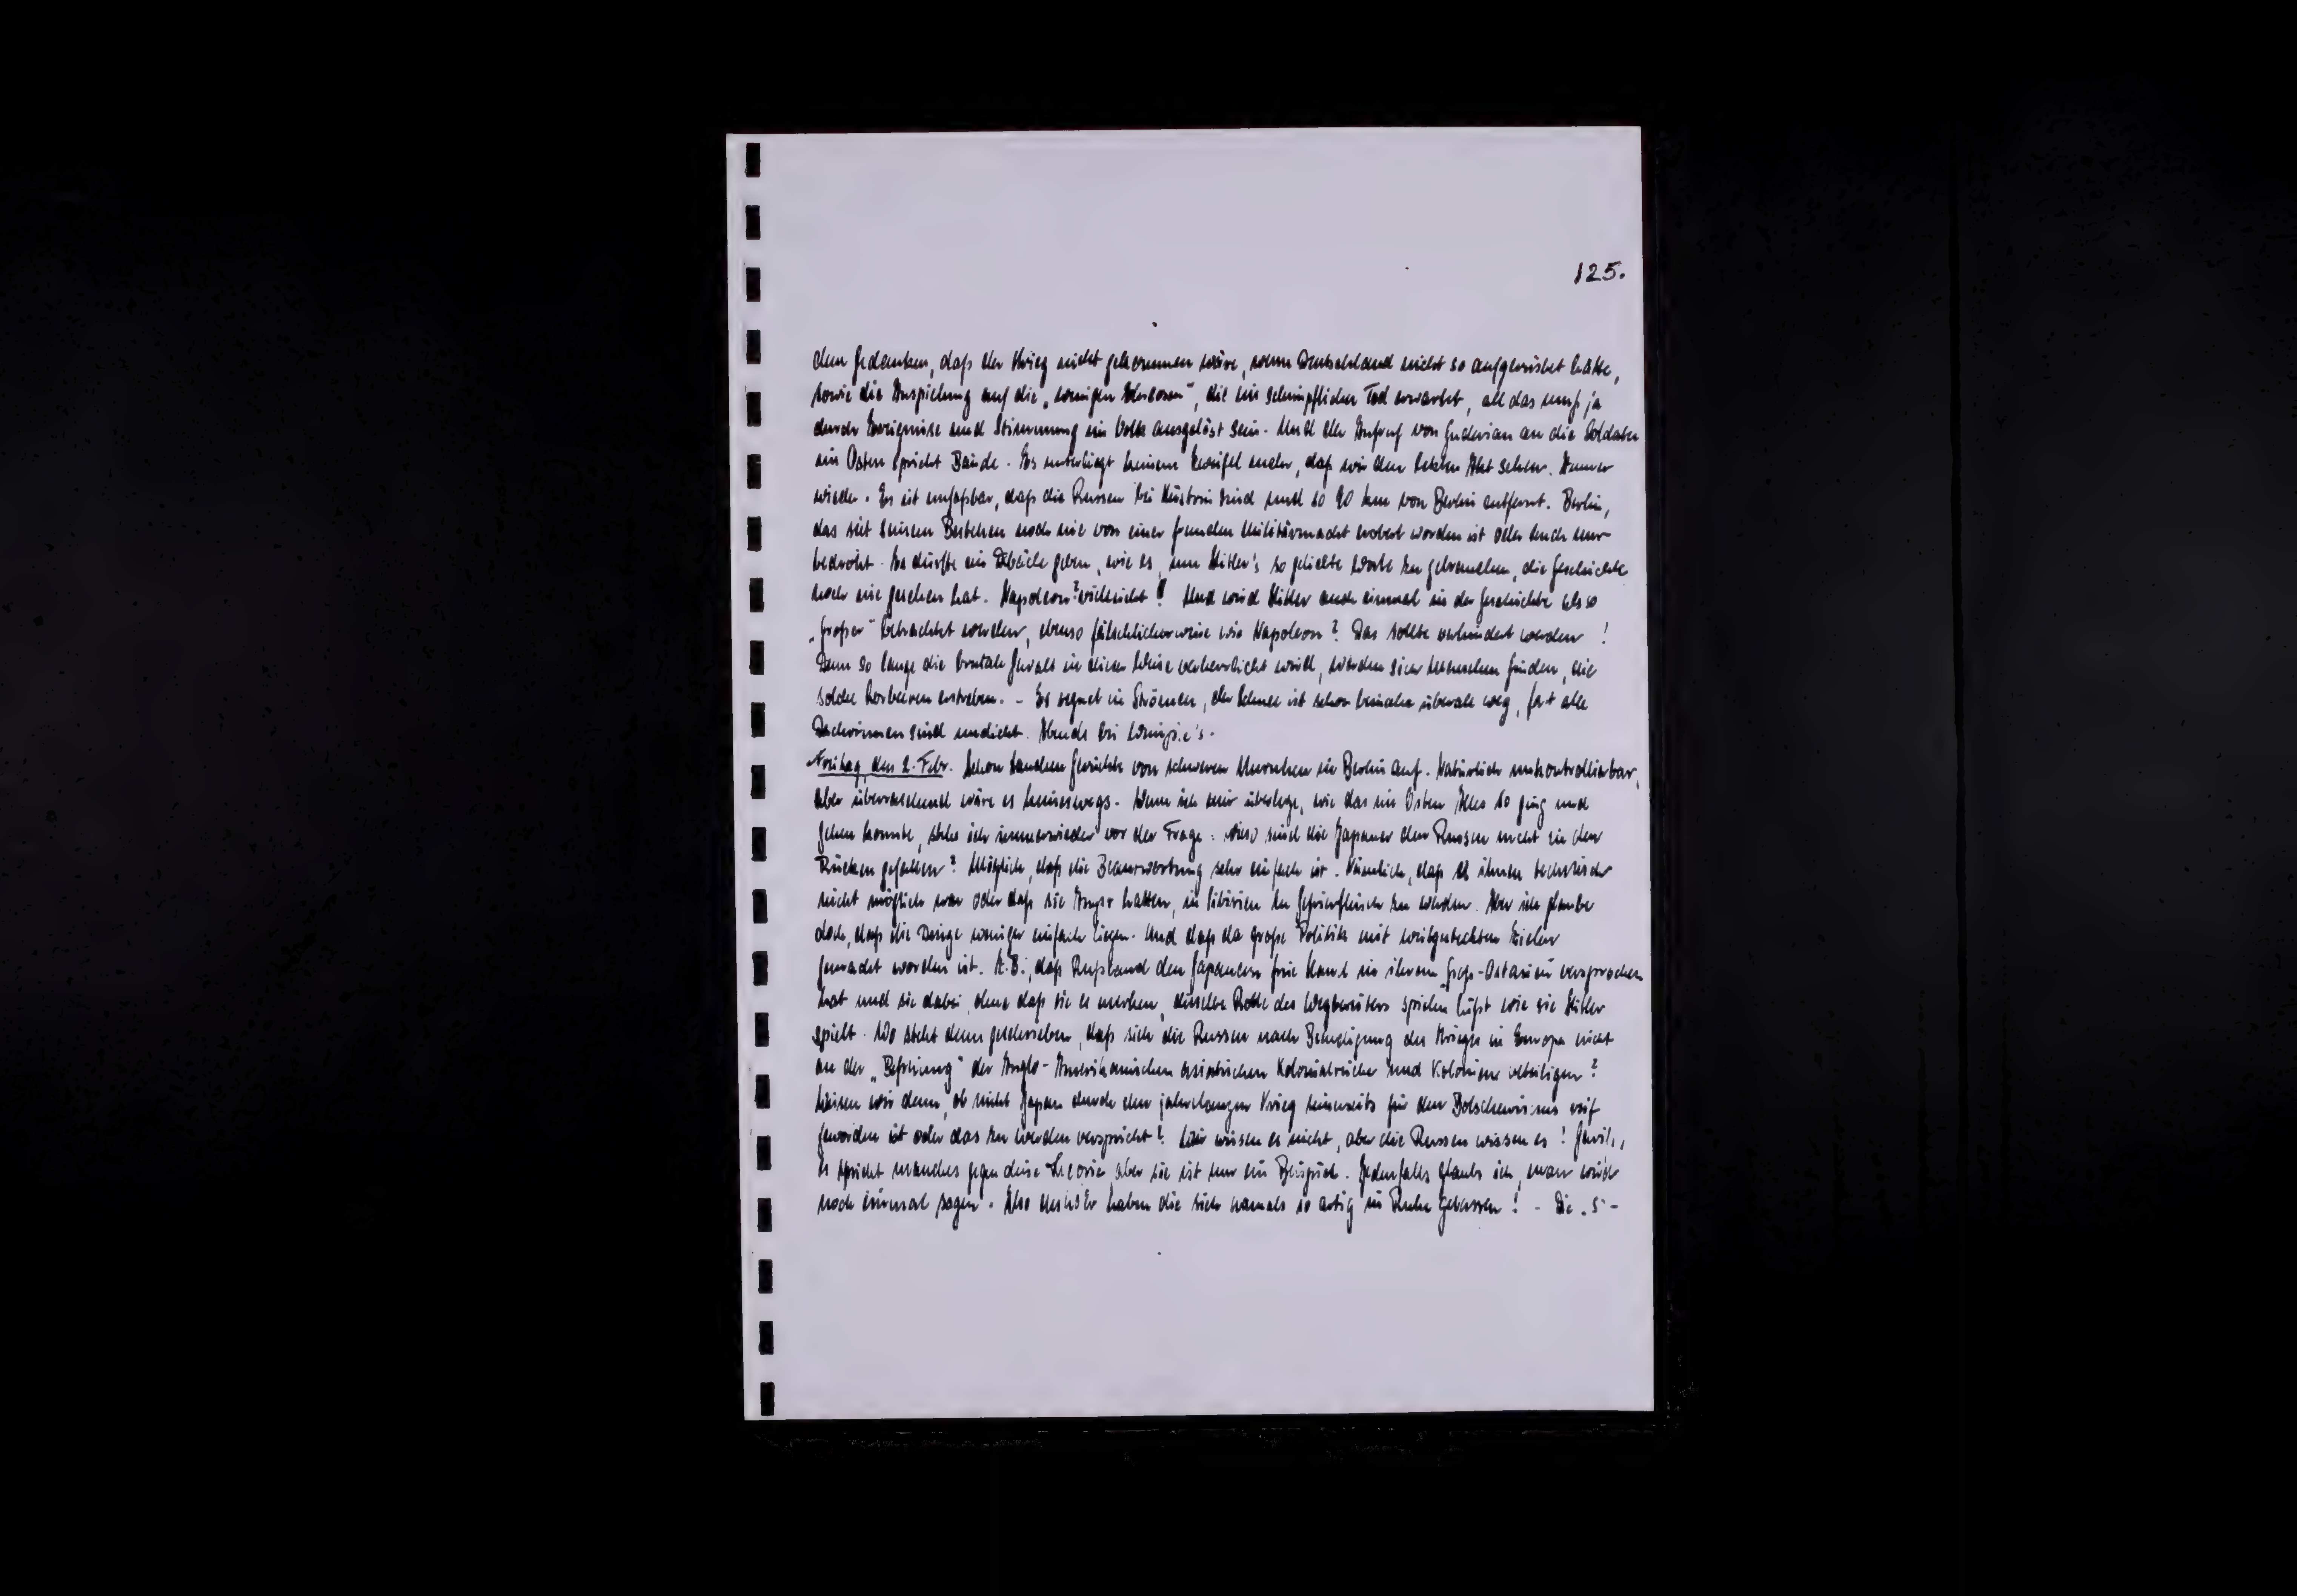 125.
dem Gedanken, daß der Krieg nicht gekommen wäre, wenn Deutschland nicht so aufgerüstet hätte,
sowie die Anspielung auf die „wenigen Ehrlosen“, die ein schimpflicher Tod erwartet, all das muß ja
durch Ereignisse und Stimmung im Volk ausgelöst sein. Und der Aufruf von Guderian an die Soldaten
im Osten spricht Bände. Es unterliegt keinem Zweifel mehr, daß wir den letzten Akt sehen. Immer
wieder. Es ist unfaßbar, daß die Russen bei Küstrin sind und so 90 km von Berlin entfernt. Berlin,
das seit seinem Bestehen noch nie von einer fremden Militärmacht erobert worden ist oder auch nur
bedroht. Es dürfte ein Debâcle geben, wie es, um Hitler's so geliebte Worte zu gebrauchen, die Geschichte
noch nie gesehen hat. Napoleon? vielleicht! Und wird Hitler auch einmal in der Geschichte als so
„Großer“ betrachtet werden, ebenso fälschlicherweise wie Napoleon? Das sollte verhindert werden!
Denn so lange die brutale Gewalt in dieser Weise verherrlicht wird, werden sich Menschen finden, die
solche Lorbeeren erstreben. - Es regnet in Strömen, der Schnee ist schon beinahe überall weg, fast alle
Dachrinnen sind undicht. Abends bei
Freitag, den 2. Febr. Schon tauchen Gerüchte von schweren Unruhen in Berlin auf. Natürlich unkontrollierbar,
aber überraschend wäre es keineswegs. Wenn ich mir überlege, wie das im Osten Alles so ging und
gehen konnte, stehe ich immerwieder vor der Frage: wieso sind die Japaner den Russen nicht in den
Rücken gefallen? Möglich, daß die Beantwortung sehr einfach ist. Nämlich, daß es ihnen technisch
nicht möglich war oder daß sie Angst hatten, in Sibirien zu Gefrierfleisch zu werden. Aber ich glaube
doch, daß die Dinge weniger einfach liegen. Und daß da große Politik mit weitgesteckten Zielen
gemacht worden ist. Z.B., daß Rußland den Japanern freie Hand in ihrem Groß-Ostasien versprochen
hat und sie dabei, ohne daß sie es merken, dieselbe Rolle des Wegbereiters spielen läßt wie sie Hitler
spielt. Wo steht denn geschrieben, daß sich die Russen nach Beendigung des Krieges in Europa nicht
an der „Befreiung“ der Anglo-Amerikanischen asiatischen Kolonialreiche und Kolonien beteiligen?
Wissen wir denn, ob nicht Japan durch den jahrelangen Krieg seinerseits für den Bolschewismus reif
geworden ist oder das zu werden verspricht? Wir wissen es nicht, aber die Russen wissen es! Gewiß,
es spricht manches gegen diese Theorie aber sie ist nur ein Beispiel. Jedenfalls glaube ich, man wird
noch einmal sagen: Also haben die sich damals so artig in Ruhe gelassen! - Die